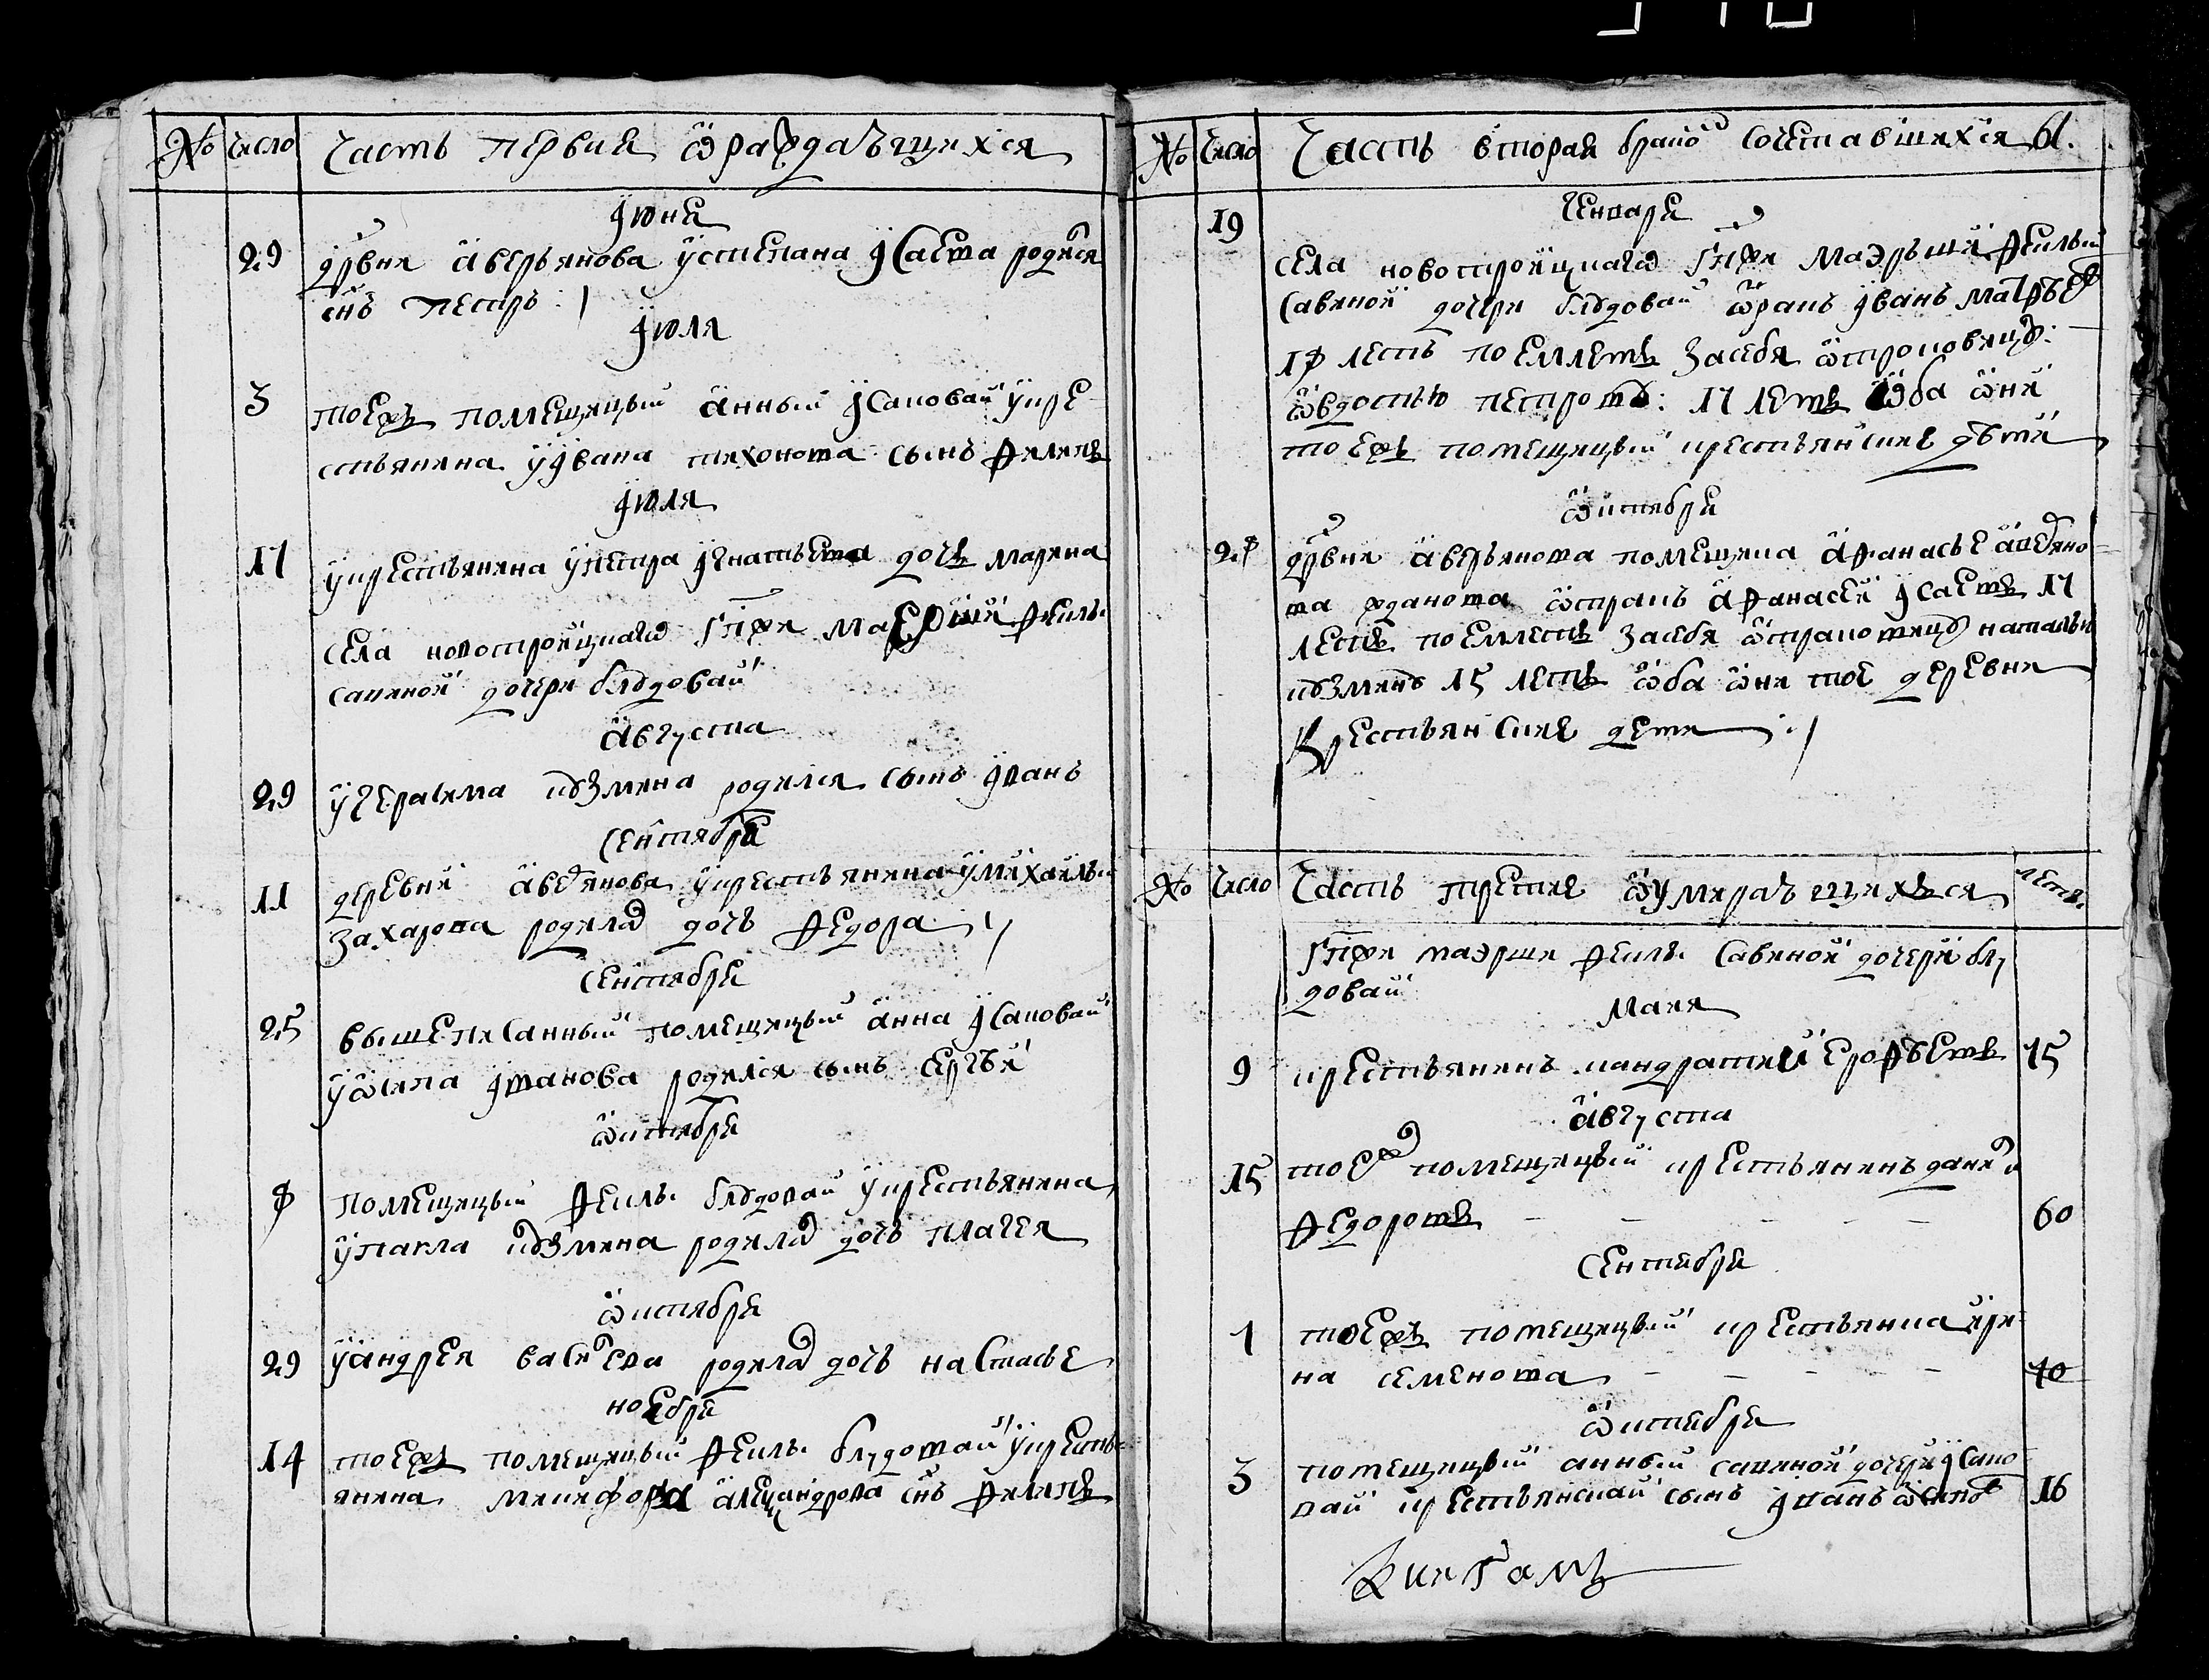 № Число Часть первая ѿ раждаъщихся
июня
29 дрвня аверьянова у степана исаева родися
снъ петръ
июля
3 тоежъ помещицыи анныи исаковаи у кре
стьянина у ивана тихонова сынъ филипъ
июля
17 у крестьянина у петра игнатьева дочь марина
села новотроицкаго гпжи маэрши феклы
савиной дочери блудоваи
августа
29 у герасима кузмина родился сынъ иванъ
сентября
11 деревни авеянова у крестьянина у михаилы
захарова родила дочь федора
сентября
25 вышеписанныи помещицыи анна исаковаи
у осипа иванова родился сынъ сергѣи
октября
помещицыи феклы блудоваи у крестьянина
у павла кузмина родила дочь плагея
октября
29 у андрея васиева родила дочь настасье
ноября
14 тоежъ помещицыи феклы блудоваи у кресть
янина никифора александрова снъ филипъ
№ Число Часть вторая брако сочетавшихся 61.
генваря
19
села новотроицкаго гпжи маэрши феклыи
савиной дочери блудоваи отракъ иванъ матвѣе
летъ поемлетъ за себя отроковицу
овдотью петрову 17 летъ оба они
тоежъ помещицыи крестьянские дѣти
октября
дрвни аверьянова помещика афанасье авеяно
ва жданова отракъ афанасеи исаевъ 17
летъ поемлетъ за себя отраковицу наталью
кузмину 15 летъ оба они тое деревни
крестьянские дети
№ Число Часть третие о умираъщихъся лета
гпжи маэрши феклы савиной дочери блу
доваи
маия
9 крестьянинъ кандратеи ерофѣевъ 75
августа
15 тоеж помещицыи крестьянинъ дани
федоровъ 60
сентября
1 тоежъ помещицыи крестьянка ири
на семенова 40
октября
3 помещицыи анныи савиной дочери исако
ваи крестьянскаи сынъ иванъ осипов 16